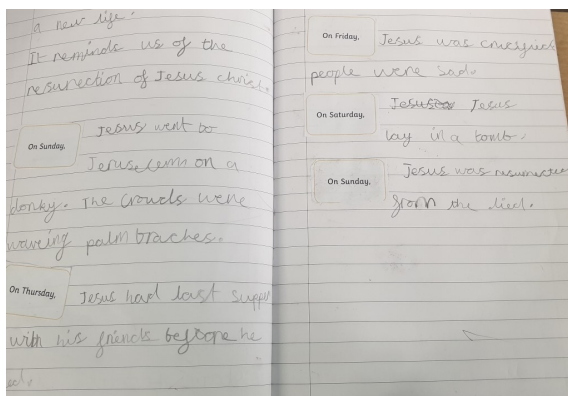 a new life.
It reminds us of the
resurrection of Jesus christ.
On Sunday, Jesus went to
Jeruselem on a
donky. The crowds were
waveing palm braches.
On Thursday, Jesus had last supper
with his friends before he
On Friday, Jesus was
people were sad.
On Saturday, Jesus
lay in a tomb.
On Sunday, Jesus was
from the died.